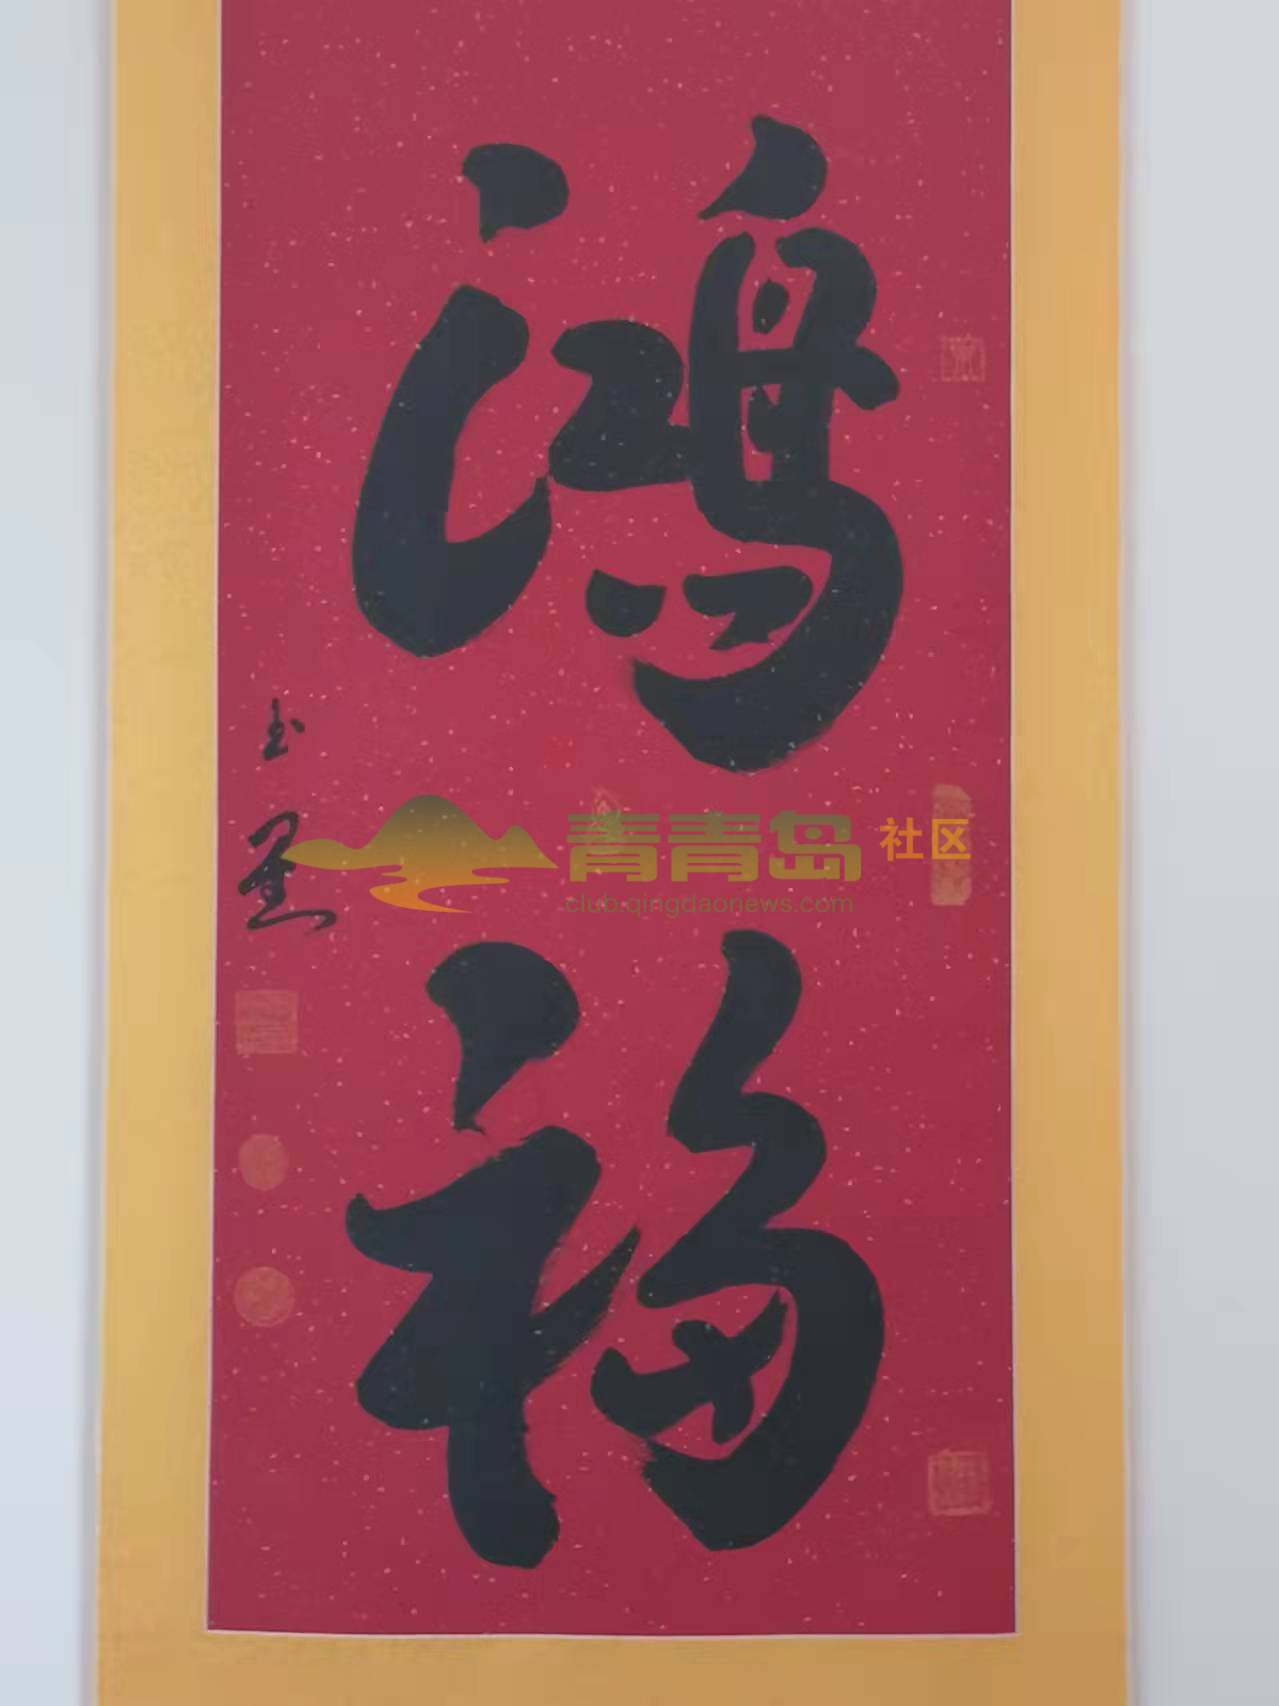 鸿
福
玉玺
青青岛 社区
club.qingdaonews.com